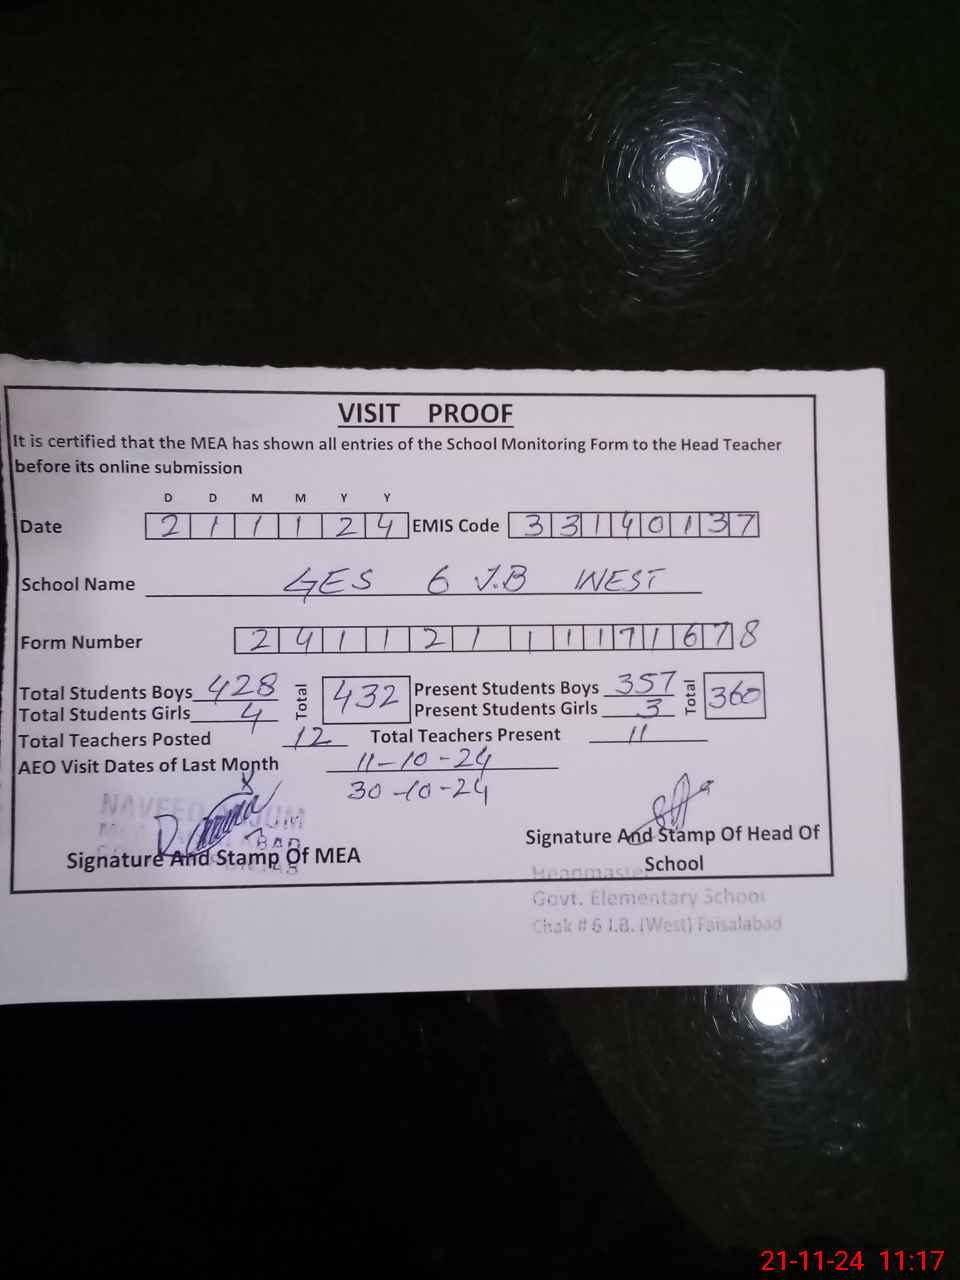 VISIT PROOF
It is certified that the MEA has shown all entries of the School Monitoring Form to the Head Teacher
before its online submission
D D M M Y Y
Date 2 1 1 1 2 4 EMIS Code 3 3 1 4 0 1 3 7
School Name GES 6 J.B WEST
Form Number 2 4 1 1 2 1 1 1 1 7 1 6 7 8
Total Students Boys 428 Total 432 Present Students Boys 357 Total 360
Total Students Girls 4 Present Students Girls 3
Total Teachers Posted 12 Total Teachers Present 11
AEO Visit Dates of Last Month 11-10-24
30-10-24
Signature And Stamp Of MEA
Signature And Stamp Of Head Of
School
Headmaster
Govt. Elementary School
Chak # 6 J.B. (West) Faisalabad
21-11-24 11:17